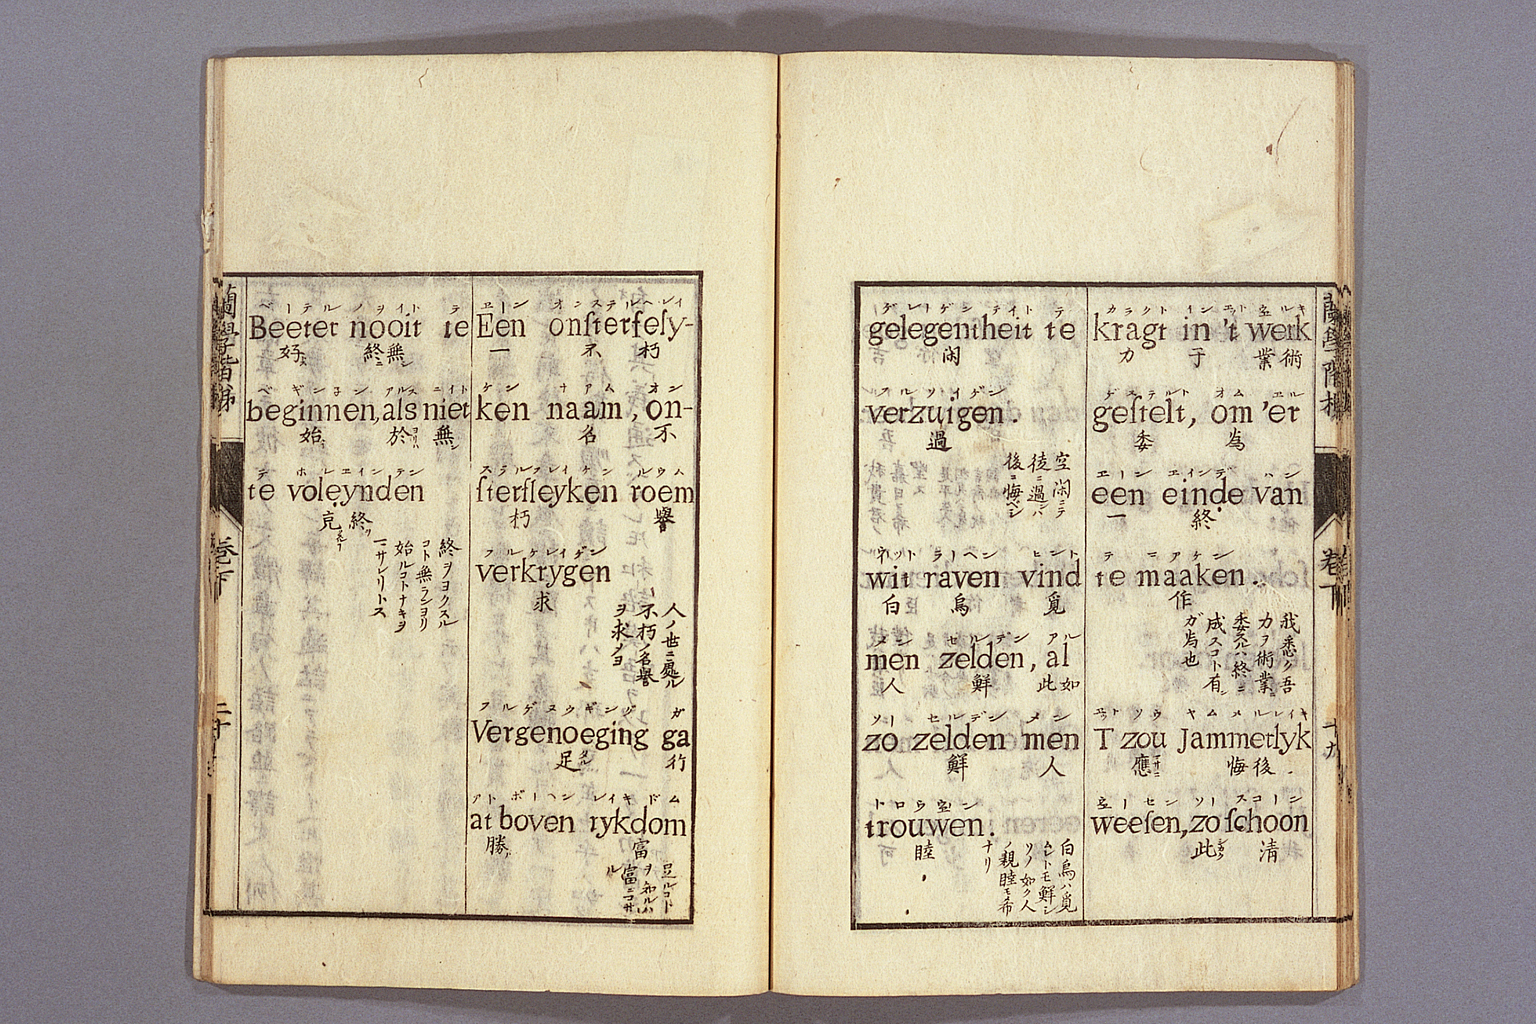 蘭學階梯
卷下
十九
カラクト イン エット ウェルキ
kragt in 't werk
力 于 業 術
ゲステルト オム エル
geſtelt, om 'er
委 為
エーン エインデ ハン
een einde van
一 終
テ マアケン
te maaken.
作
我悉ク吾
力ヲ術業ニ
委スルハ終ニ
成スコト有ン
ガ為也
エット ソウ ヤムメルレイキ
T zou Jammerlyk
應 悔 後
ウェーセン ソー スコーン
weeſen, zo ſchoon
此 清
ゲレーゲンテイト テ
gelegentheit te
閑
フルソイゲン
verzuigen.
過
空閑ニテ
徒ニ過シハ
後ニ悔ベシ
ウィット ラーヘン ヒント
wit raven vind
白 烏 覓
メン セルデン アル
men zelden, al
人 鮮 此 如
ソー セルデン メン
zo zelden men
鮮 人
トロウウェン
trouwen.
睦
白烏ハ覓
ムレトモ鮮シ
ソノ如ク人
ノ親睦モ希
ナリ
エーン オンステルヘレイ
Een onſterfeſy-
一 不 朽
ケン ナアム オン
ken naam, on-
名 不
ステルフレイケン ルウム
ſterfleyken roem
朽 譽
フルケレイゲン
verkrygen
求
人ノ世ニ處ル
不朽ノ名譽
ヲ求ノヨ
フルゲヌウギング ガ
Vergenoeging ga
足 行
アト ボーヘン レイキドム
at boven rykdom
勝 富
足ルコト
ヲ知ルハ
富ニコサ
ル
ベーテル ノヲイト テ
Beeter nooit te
好 終 無
ベギンネン アルス ニイト
beginnen, als niet
始 於 無
テ ホレエインデン
te voleynden
完 終
終ヲヨクスル
コト無ランヨリ
始ルコトナキヲ
ニサレリトス
蘭學階梯
卷下
二十